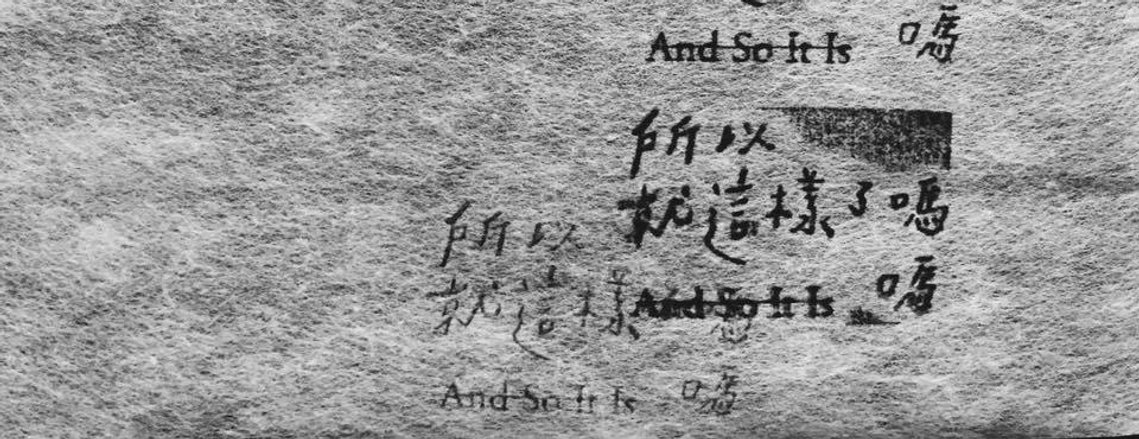 And So It Is 嗎
所以
就這樣了嗎
所以
就這樣
And So It Is 嗎
And So It Is 嗎